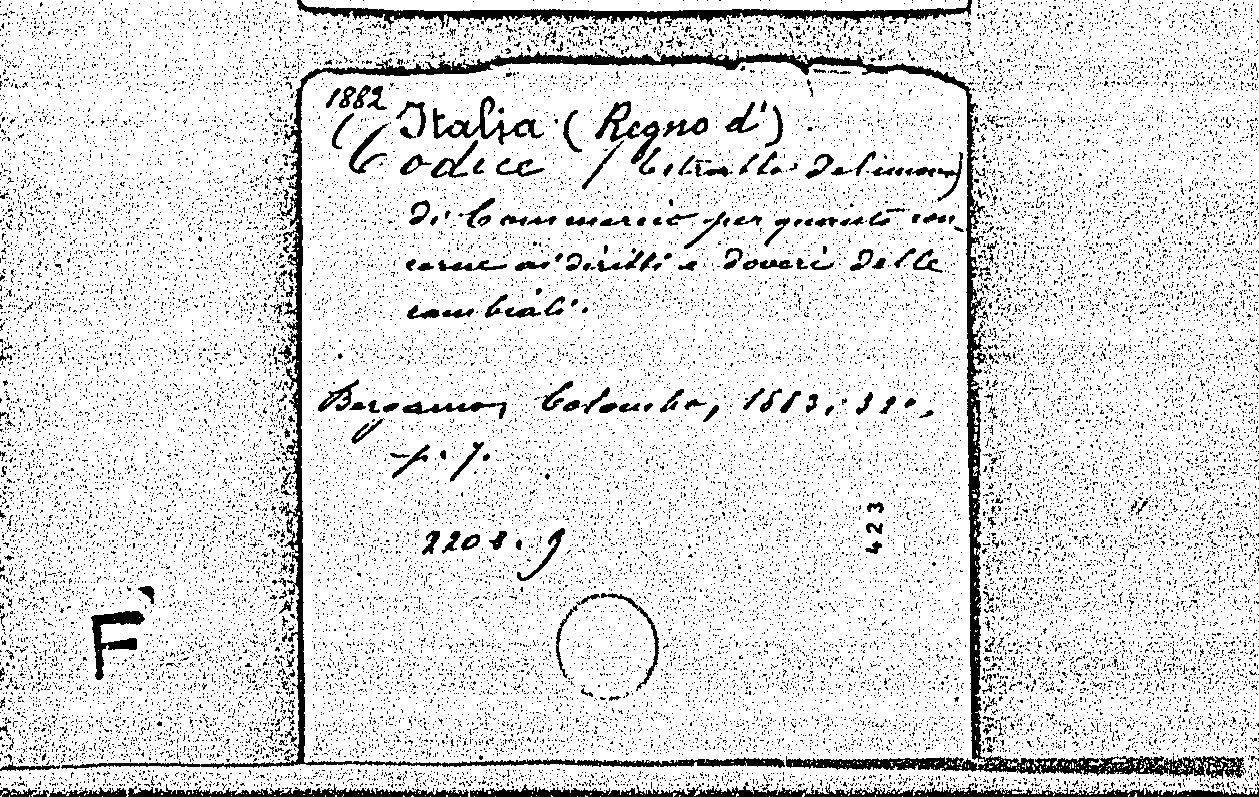 1882
Italia (Regno d')
Codice / (Estratto del nuovo)
di Commercio per quanto con
cerne ai diritti e doveri delle
cambiali.
Bergamo, Colombo, 1883, 32°,
p. 7.
2208. 9
423
F